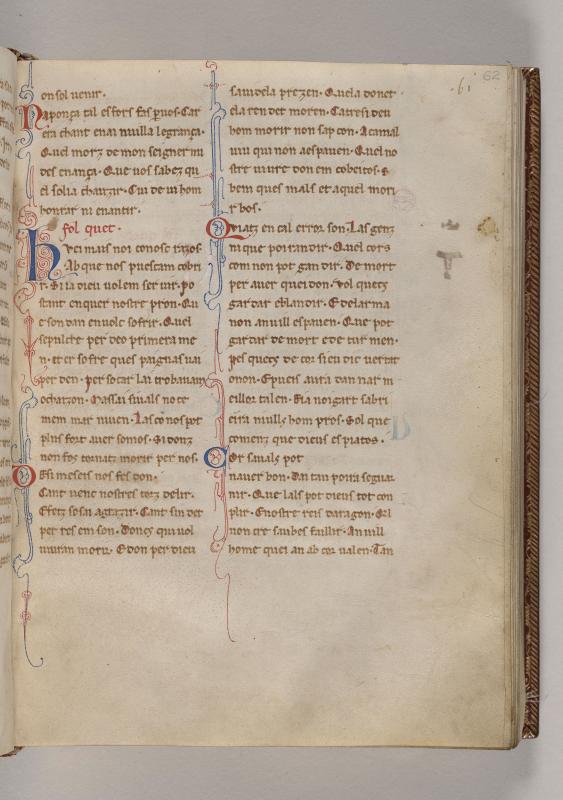 62
61
on sol uenir.
Naponça til esfors fas puos. Car
era chant enai nuilla legrança.
Quel morz de mon seigner mi
des enança. Que uos sabez qu
el solia chauzir. Cui de ui hom
honrar ni enantir.
fol quet.
Huei mais noi conosc razos
Ab que nos puescam cobri
r. Si ia dieu uolem seruir. po
stant enquer nostre pron. Qu
e son dan en uolc sofrir. Quel
sepulcre per deo primera me
n. et er sofre ques paignas uai
per den. per so car lai trobauam
ocharzon. Mas sai siuals no te
mem mar niuen. Las co nos pot
plus fort auer somos. Si donz
non fos tornatz morir per nos.
Osi meseis nos fes don.
Cant uenc nostres torz delir.
E fetz so sai agrazir. Cant sin det
per res em son. Doncs qui uol
uiuran morir. E don per dieu
sauidela prezen. Quela donet
ela ren det moren. Catresi deu
hom morir non sap con. A camal
uiu qui non a espauen. Quel no
stre uiure don em cobeitos. s
bem ques mals et aquel mori
r bos.
Quiatz en cal error son. Las genz
ni que poiran dir. Quel cors
com non pot gandir. De mort
per auer quei don. Vol quecs
gardar eblandir. E delarma
non an uill espauen. Que pot
gardar de mort e de turmen.
Pes quecs de cor si eu dic uertat
o non. E pueis aura dan nar m
eillor talen. Ria noi gart sabri
eira nuills hom pros. Sol que
comenz que dieus es piatos.
Cor sauals pot
nauer bon. Dan tan poira segur
nir. Que lals pot dieus tot con
plir. E nostre reis daragon. Qel
non cre saubes faillir. An uill
home quei an ab cor ualen. Tan